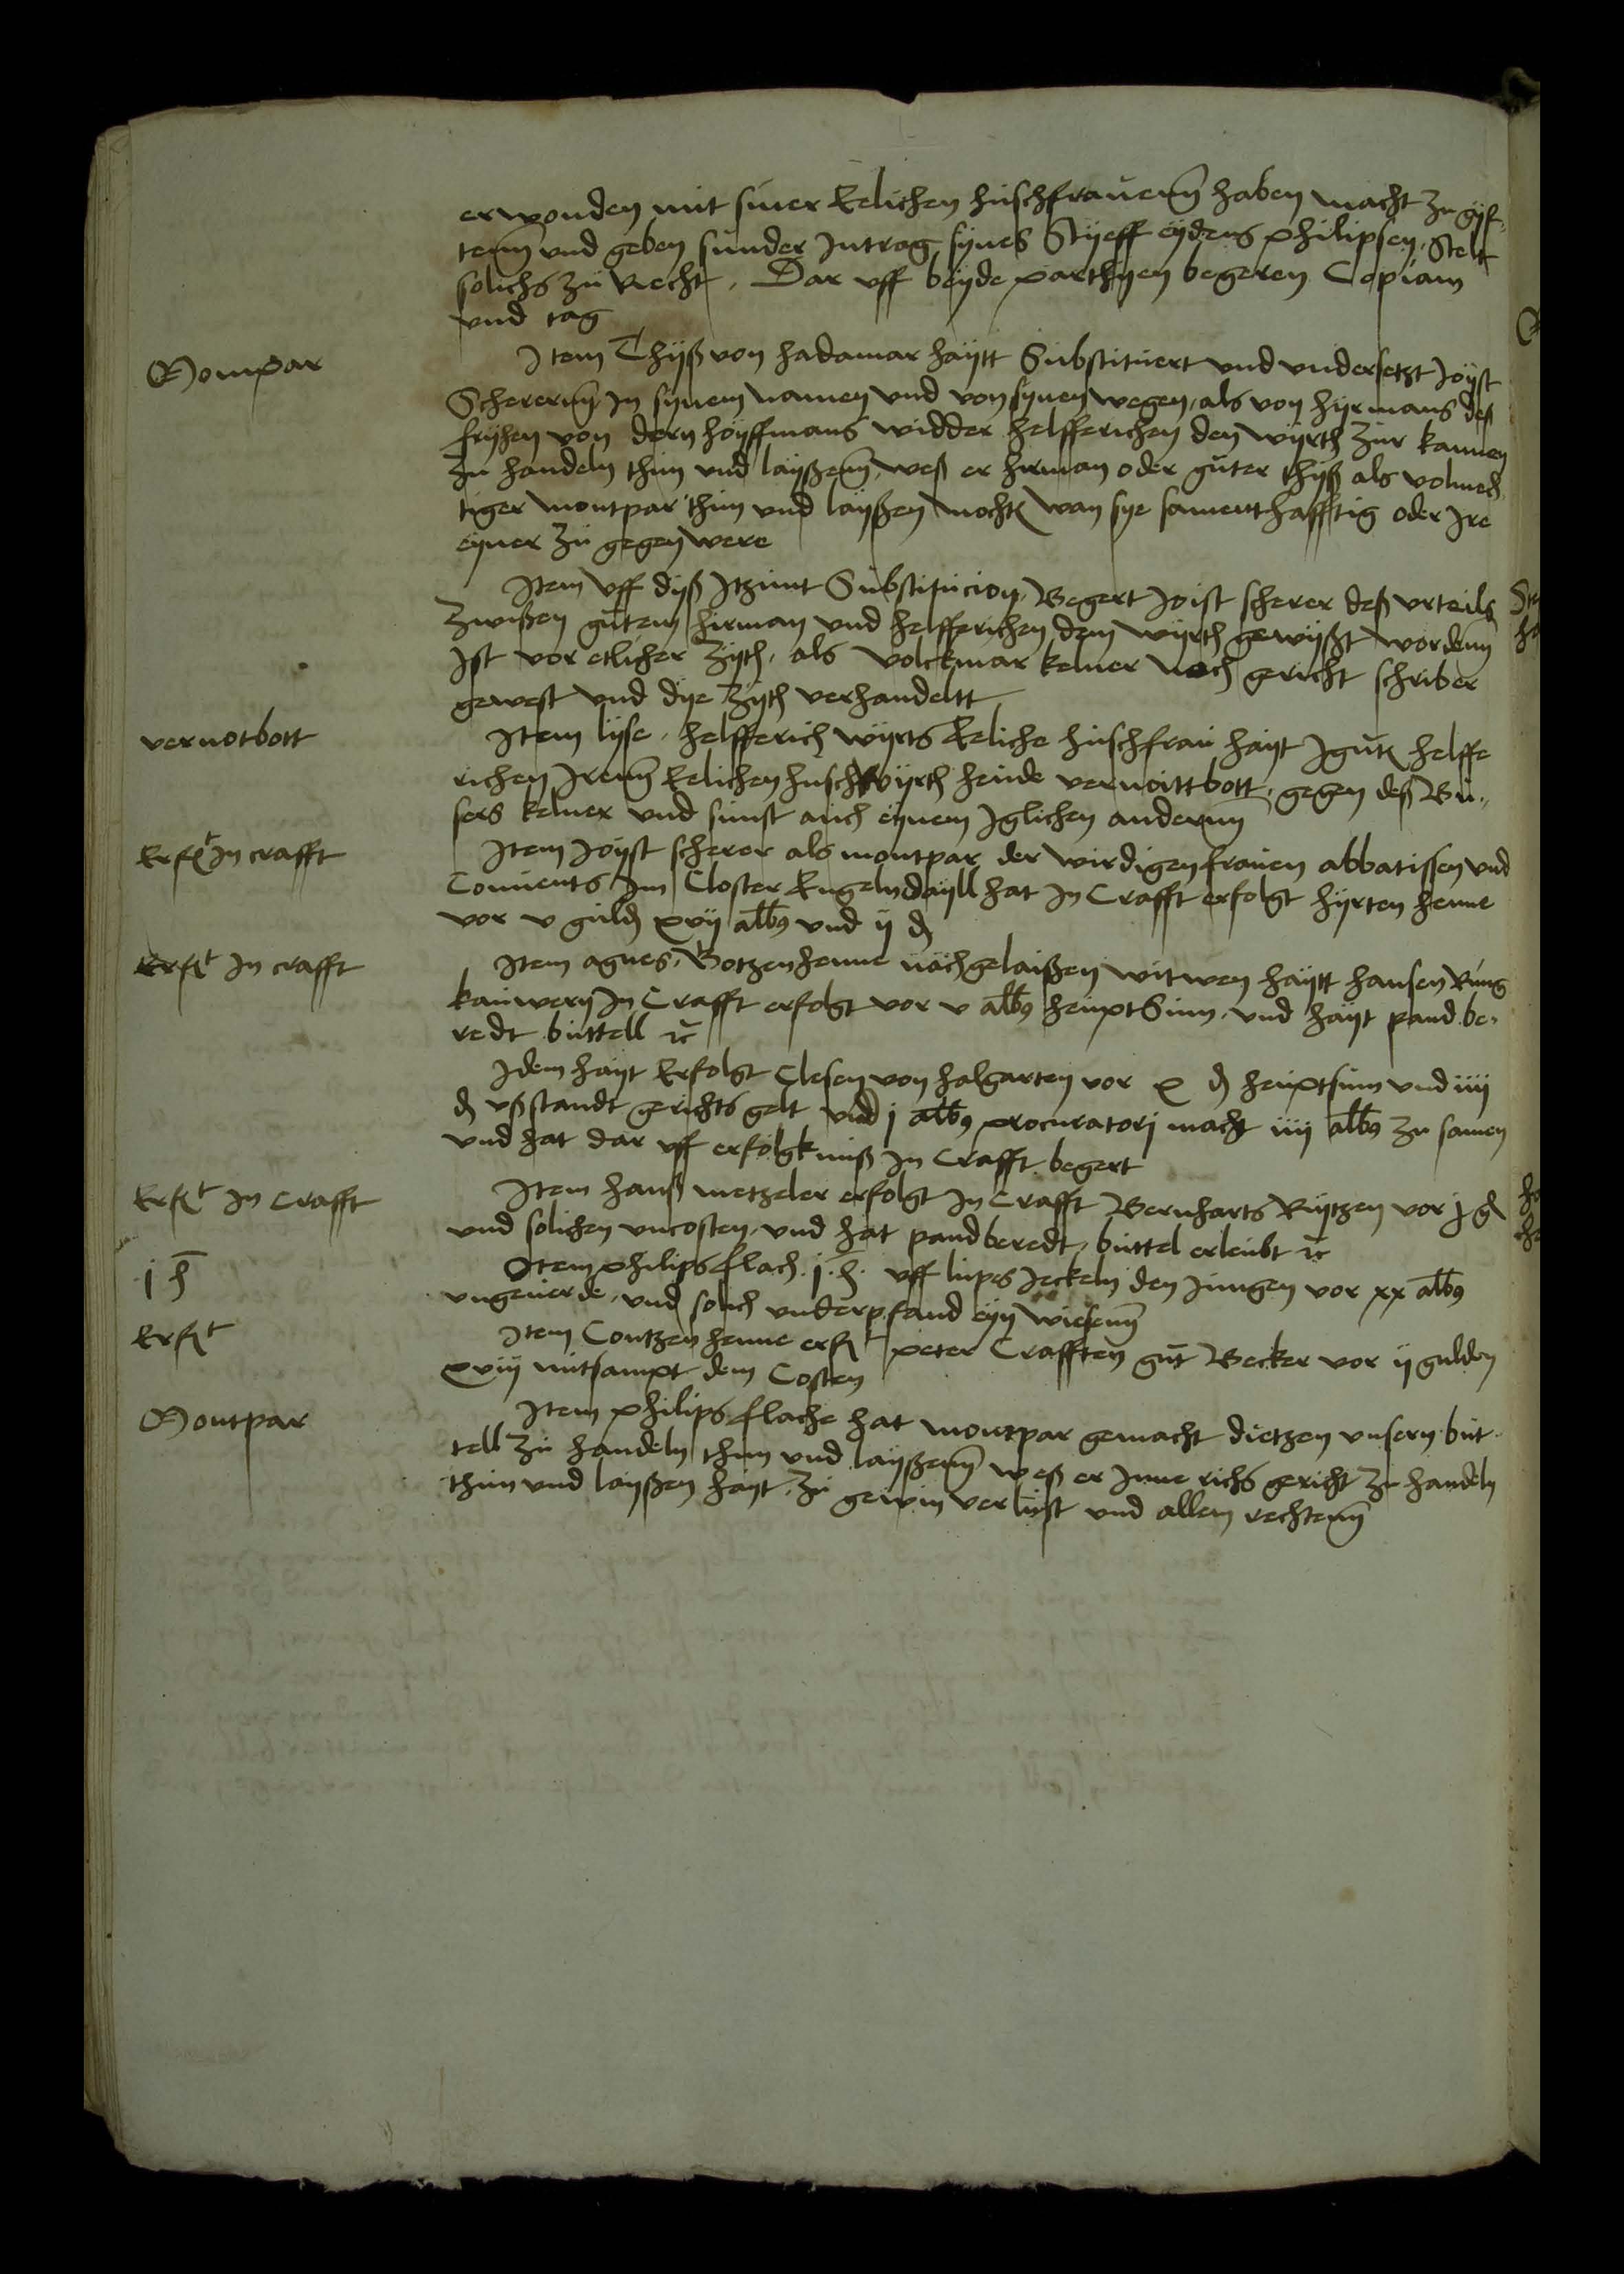 erwonden mit siner Eelichen huschfrauenn haben macht zu gyf-
tenn vnd geben sunder Intrag synes Styeff eydens philipsen. Stelt
solichs zu Recht. Dar vff beyde parthyen begeren Copiam
vnd tag
Mompar
Item Thyß von hadamar haytt Substituert vnd vndersetzt Joyst
Scherernn In synem namen vnd von synen wegen, als von hyrmans deß
fryhen von dern hoyffmans widder helfferichen den wyrth zur kannen
zu handeln thun vnd layßenn, weß er hirman oder guter thyß als volmech
tiger montpar thun vnd layßen mocht wan sye sament hafftig oder Ire
eyner zu gegen were
Item vff dyß Itzunt Substitucion. Begert Joist scherer deß vrteils
zwißen gutem hirman vnd helfferichen dem wyrth gewyßt wordenn
Ist vor etlicher zyth, als volckmar kelner noch gericht schriber
gewest vnd dye zyth verhandeltt
vernotbott
Item lyse, helfferich wyrts Eeliche huschfrau hayt Jgut helffe
richen Irenn Eelichen huschwyrth heude vernoittbott, gegen deß Bu-
sers kelner vnd sunst auch eynem Iglichen andernn
Erfft In crafft
Item Joyst scherer als montpar der wirdigen frauen abbatissen vnd
Conuents Im Closter Engelndayll hat In Crafft erfolgt hyrten henne
vor v guld xvij albus vnd ij d
Erfft In crafft
Item agnes, Botzenhenne nachgelaißen witwen haytt hansen Rung
kauwern In Crafft erfolgt vor v albus heuptSum, vnd hayt pand be-
redt buttell etc
Idem hayt Erfolgt Clesen von halgarten vor x d heuptsum vnd iiij
d vßstandt gerichts gelt vnd j albus procuratorj macht iiij albus zu samen
vnd hat dar vff erfolgkniß In Crafft begert
Erfft In Crafft
Item hanß metzeler erfolgt In Crafft Bernharts Ruytzen vor j gl
vnd solichen vncosten, vnd hat pandberedt, buttel erleubt etc
j h
Item philips flach. j. h. vff lupes Jeckeln den Jungen vor xx albus
vngeuerde, vnd solich vnderpfand eyn wiesenn
Erfft
Item Contzenhenne erfft peter Crafften gut Becker vor ij gulden
xviij mitsampt dem Costen
Montpar
Item philips flache hat montpar gemacht dietzen vnsern but-
tell zu handeln thun vnd layßenn weß er Inne richs gericht zu handeln
thun vnd layßen hayt, zu gewin verlust vnd allem rechtenn